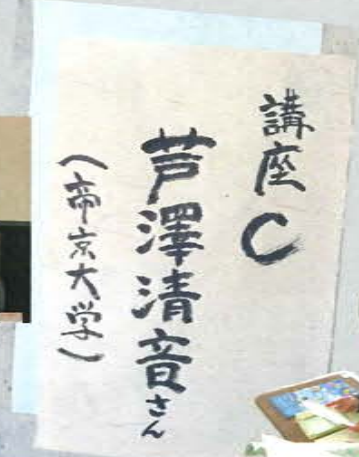 講座C
芦澤清音さん
(帝京大学)